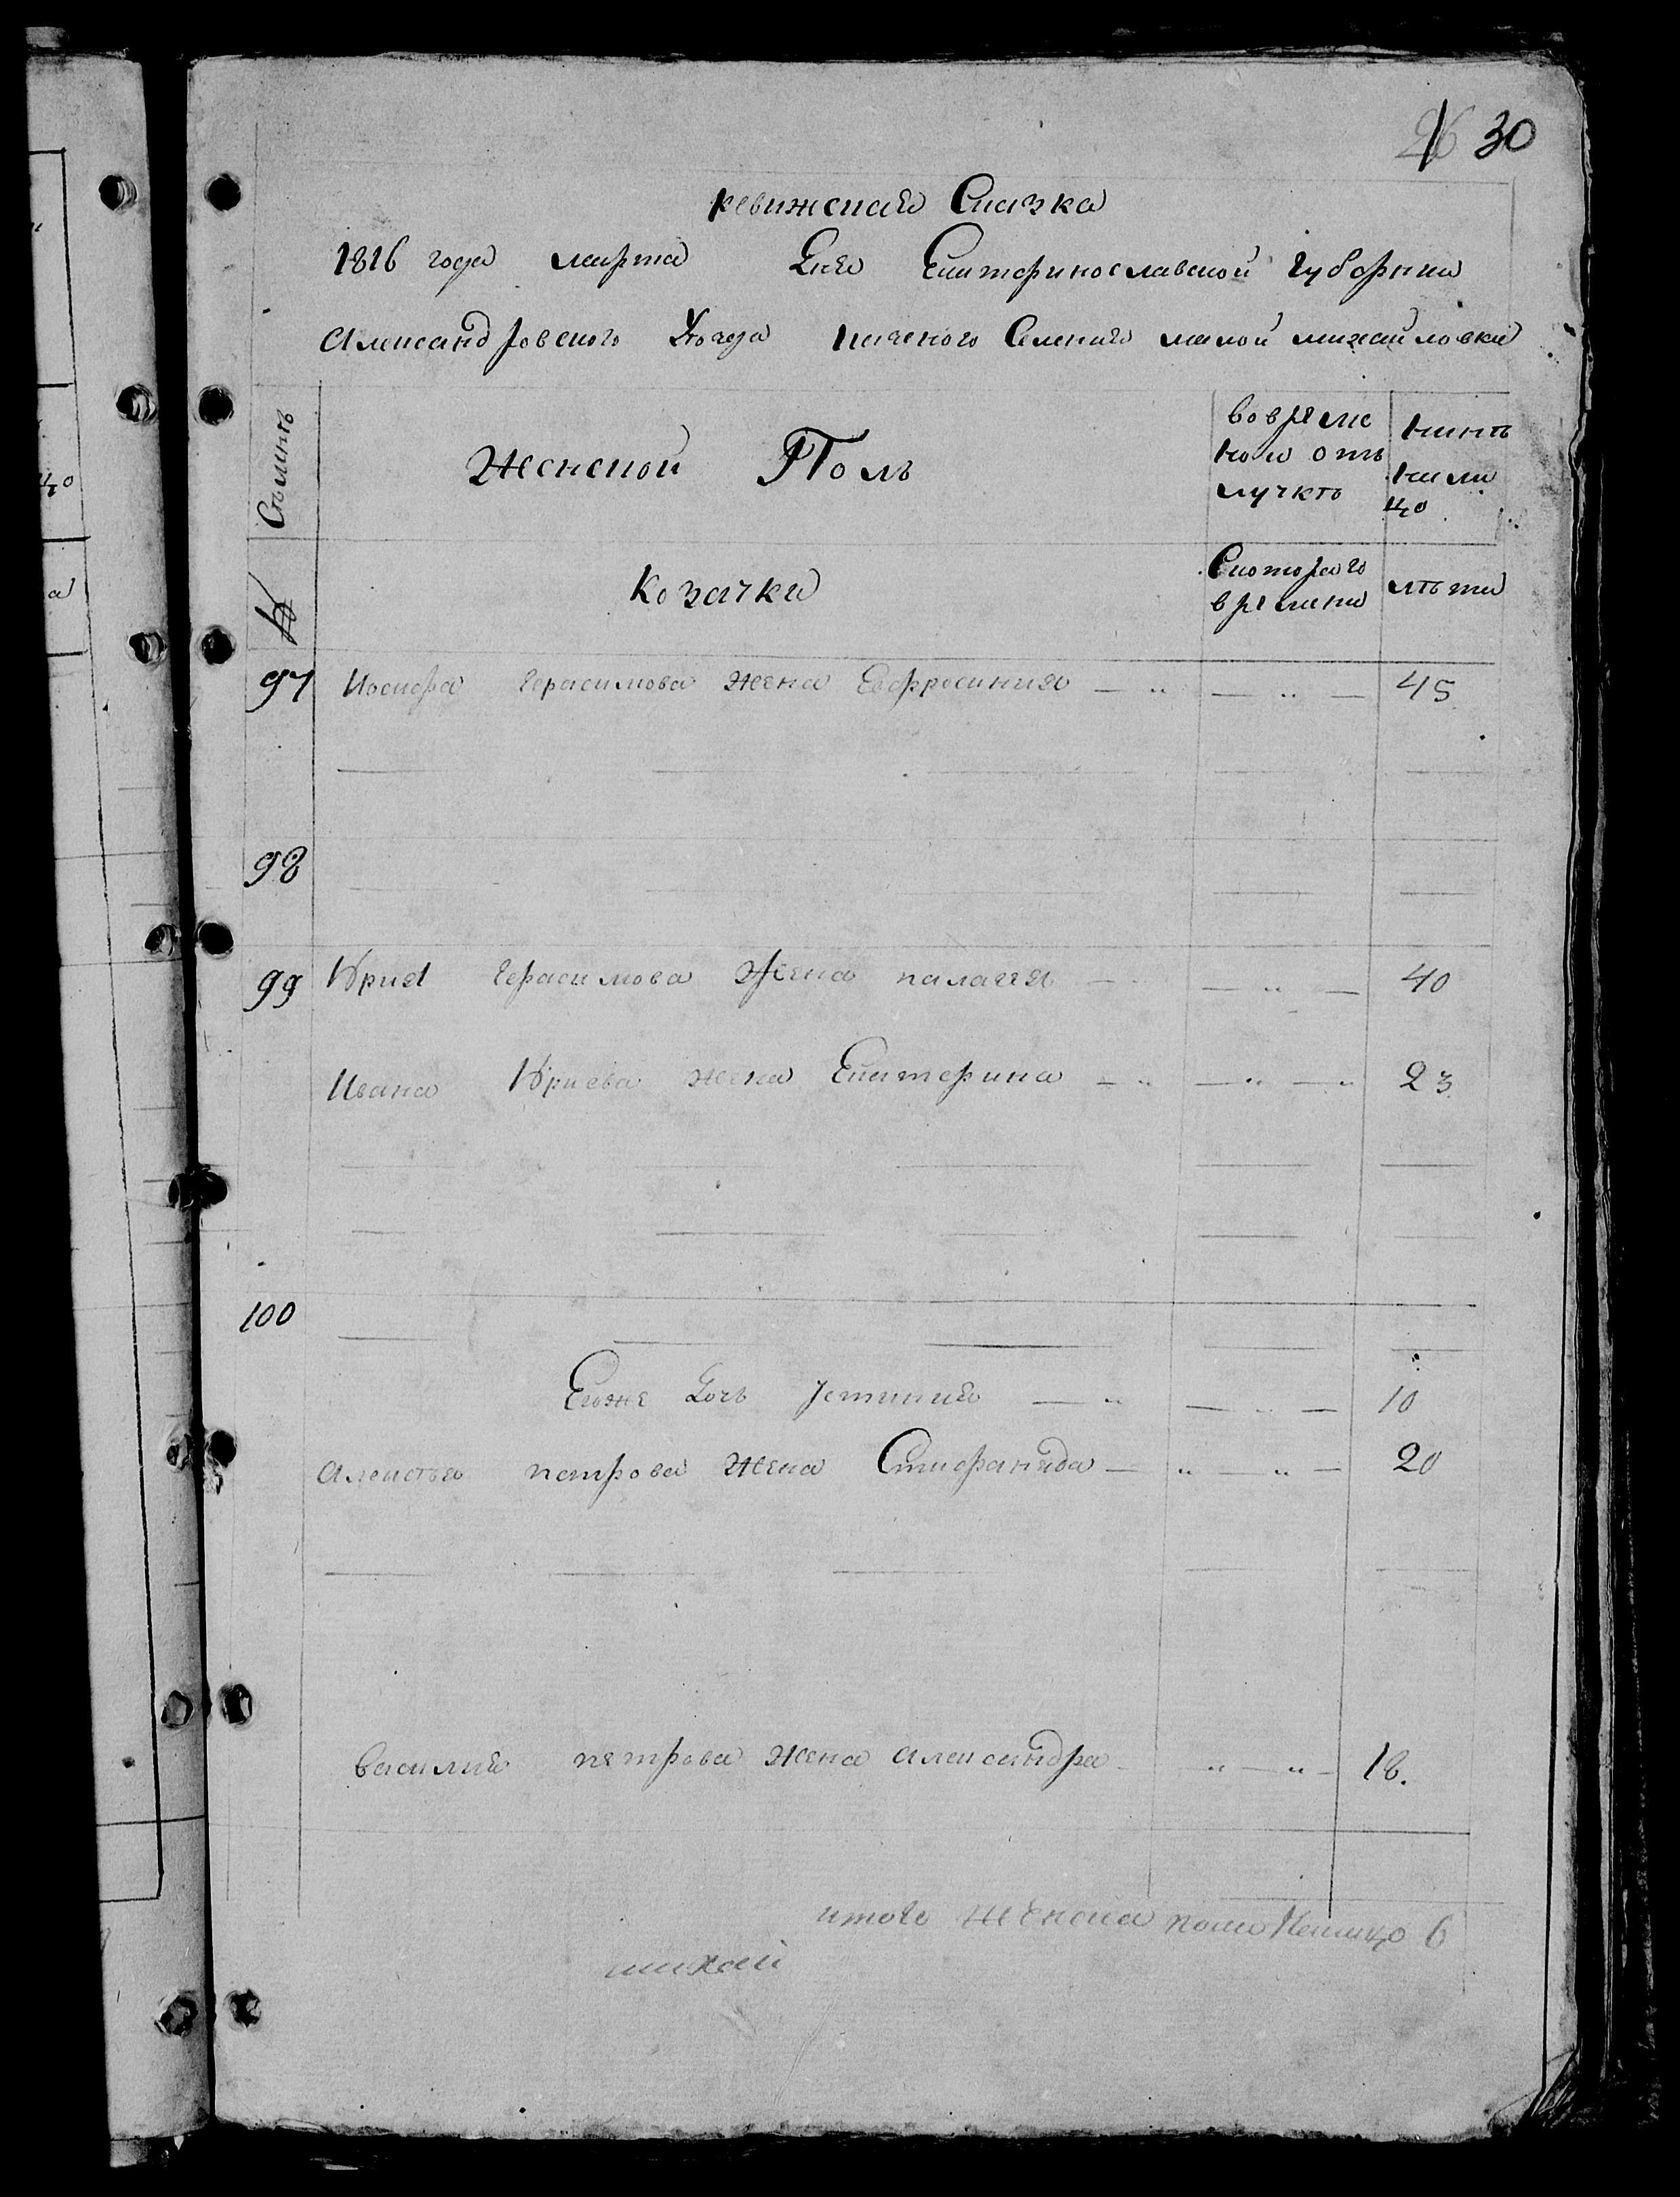 26 30
ревижская Сказка
1816 года марта Дня Екатеринославской губернии
Александровского Уезда казеного Селения малой михайловки
Съмьиъ
№
Женской Полъ
во време
ной отъ
лучкѣ
нынѣ
нали
цо
Козачки
Скотораго
времени
лѣта
97 Иосифа Герасимова жена Евфросиния — " — " — 45
98
99 Юрия Герасимова жена палагея — — " — 40
Ивана Юриева жена Екатерина — " — " — " 23
100
Егоже Дочь Устиния — " — — 10
Алексѣя петрова жена Стифанида — " — " — 20
василия петрова жена александра — " — " — 18.
итого женска пола налицо 6
михай